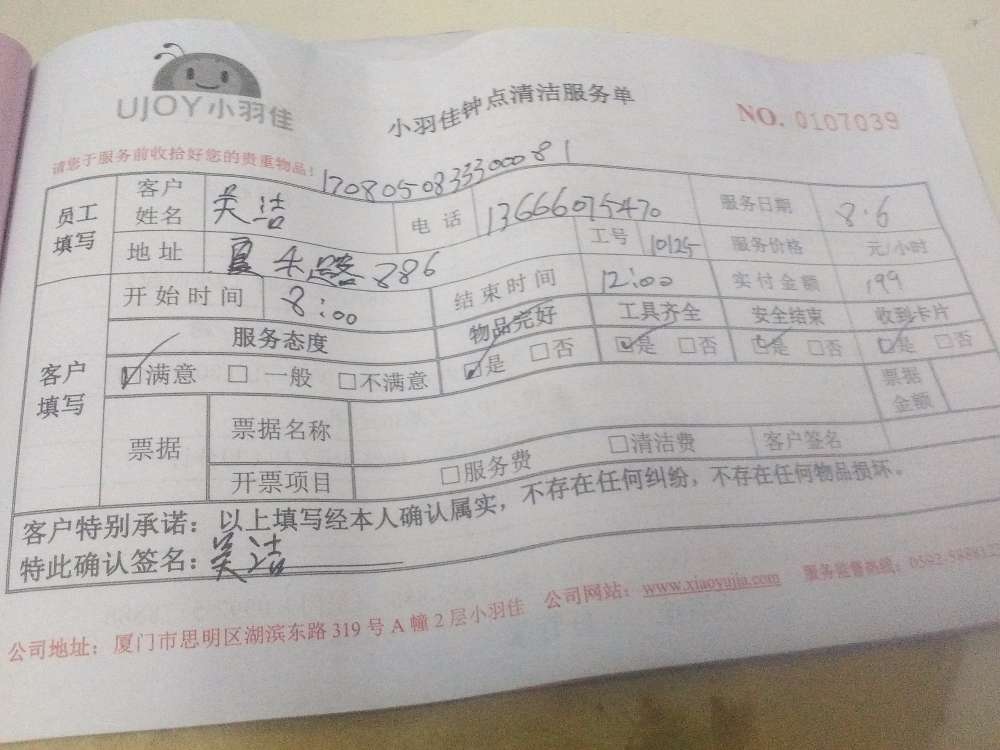 UJOY小羽佳
小羽佳钟点清洁服务单
NO. 0107039
请您于服务前收拾好您的贵重物品!
17080508333000081
员工填写 客户姓名 吴洁 电话 13666075470 服务日期 8.6
地址 厦禾路886 工号 10125 服务价格 元/小时
客户填写 开始时间 8:00 结束时间 12:00 实付金额 199
服务态度 物品完好 工具齐全 安全结束 收到卡片
☑满意 □一般 □不满意 ☑是 □否 ☑是 □否 ☑是 □否 ☑是 □否
票据 票据名称 票据金额
开票项目 □服务费 □清洁费 客户签名
客户特别承诺:以上填写经本人确认属实,不存在任何纠纷,不存在任何物品损坏。
特此确认签名:吴洁
公司地址:厦门市思明区湖滨东路319号A幢2层小羽佳 公司网站:www.xiaoyujia.com 服务监督热线: